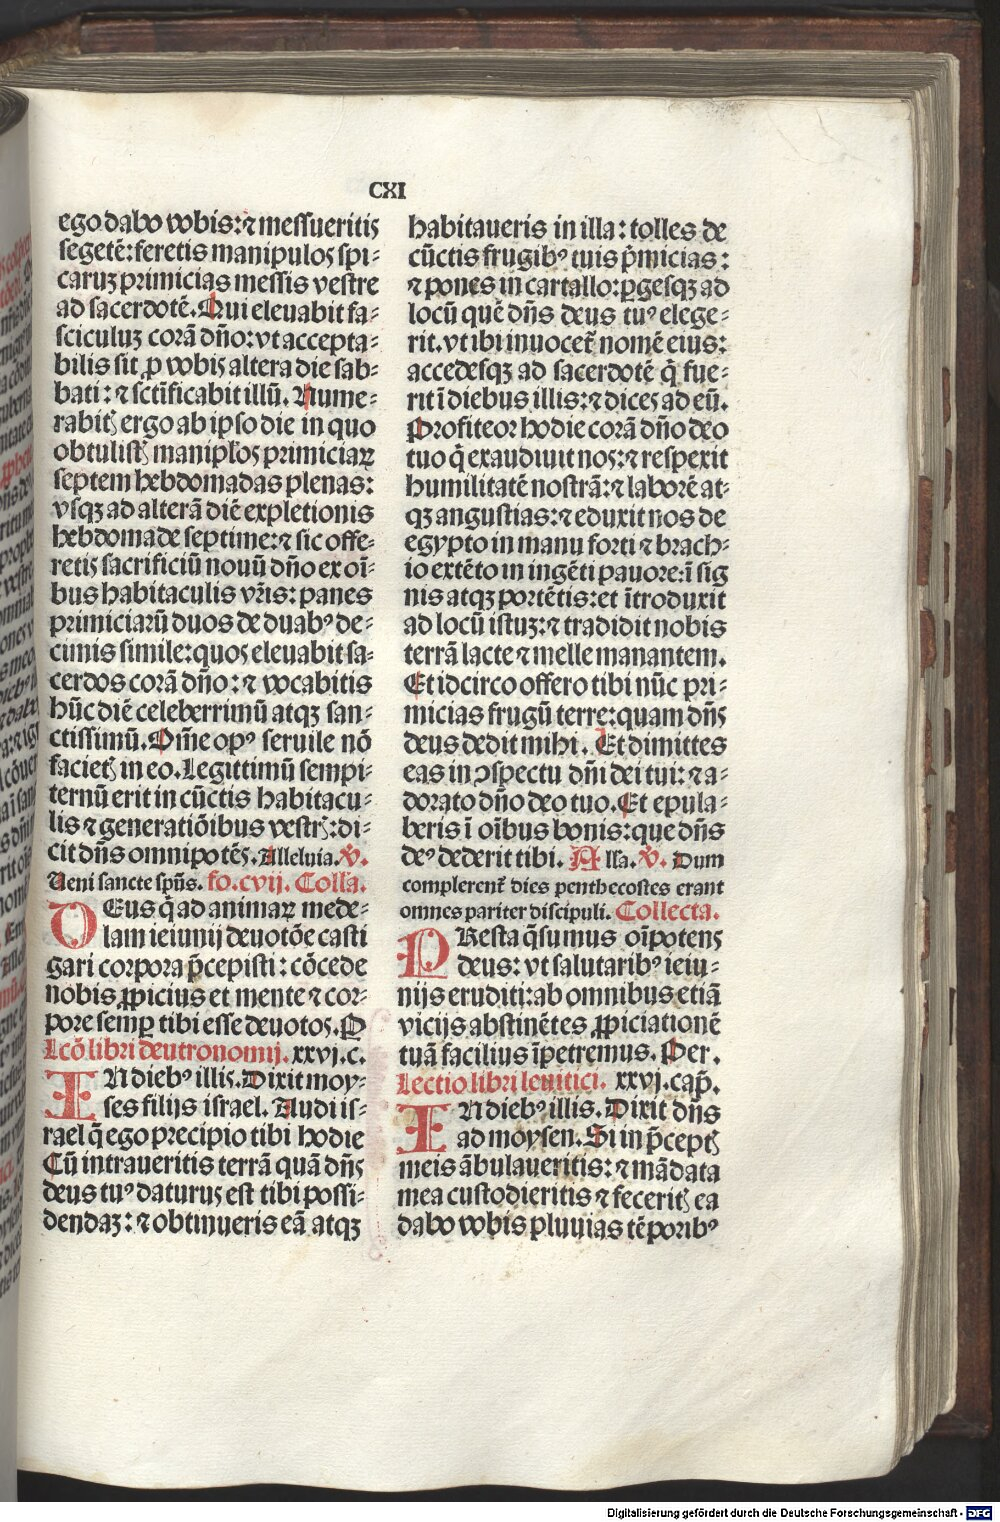 CXI
ego dabo vobis: ⁊ messueritis
segetē: feretis manipulos spi⸗
caruꝫ primicias messis vestre
ad sacerdotē. Qui eleuabit fa⸗
sciculuꝫ corā dn̄o: vt accepta⸗
bilis sit ꝓ vobis altera die sab⸗
bati: ⁊ sctīficabit illū. Nume⸗
rabitꝭ ergo ab ipso die in quo
obtulistꝭ manipl̓os primiciaꝝ
septem hebdomadas plenas:
vsqꝫ ad alterā diē expletionis
hebdomade septime: ⁊ sic offe⸗
retis sacrificiū nouū dn̄o ex oī⸗
bus habitaculis vr̄is: panes
primiciarū duos de duabꝰ de⸗
cimis simile: quos eleuabit sa⸗
cerdos corā dn̄o: ⁊ vocabitis
hūc diē celeberrimū atqꝫ san⸗
ctissimū. Om̄e opꝰ seruile nō
facietꝭ in eo. Legittimū sempi⸗
ternū erit in cūctis habitacu⸗
lis ⁊ generatiōibus vestrꝭ: di⸗
cit dn̄s omnipotēs. Alleluia. ℣.
Ueni sancte spūs. fo. cvij. Colla.
DEus q̄ ad animaꝝ mede⸗
lam ieiunij deuotōe casti
gari corpora p̄cepisti: cōcede
nobis ꝓpicius et mente ⁊ cor⸗
pore semꝑ tibi esse deuotos. P
Lcō libri deutronomij. xxvj. c.
IN diebꝰ illis. Dixit moy⸗
ses filijs israel. Audi is⸗
rael q̄ ego precipio tibi hodie
Cū intraueritis terrā quā dn̄s
deus tuꝰ daturus est tibi possi⸗
dendaꝫ: ⁊ obtinueris eā atqꝫ
habitaueris in illa: tolles de
cūctis frugibꝰ tuis p̄micias:
⁊ pones in cartallo: ꝑgesqꝫ ad
locū quē dn̄s deus tuꝰ elege⸗
rit. vt ibi inuocet᷑ nomē eius:
accedesqꝫ ad sacerdotē q̄ fue⸗
rit ī diebus illis: ⁊ dices ad eū.
Profiteor hodie corā dn̄o deo
tuo q̄ exaudiuit nos: ⁊ respexit
humilitatē nostrā: ⁊ laborē at⸗
qꝫ angustias: ⁊ eduxit nos de
egypto in manu forti ⁊ brach⸗
io extēto in ingēti pauore: ī sig
nis atqꝫ portētis: et ītroduxit
ad locū istuꝫ: ⁊ tradidit nobis
terrā lacte ⁊ melle manantem.
Et idcirco offero tibi nūc pri⸗
micias frugū terre: quam dn̄s
deus dedit mihi. Et dimittes
eas in ↄspectu dn̄i dei tui: ⁊ a⸗
dorato dn̄o deo tuo. Et epula⸗
beris ī oībus bonis: que dn̄s
deꝰ dederit tibi. Alla. ℣. Dum
complerent᷑ dies penthecostes erant
omnes pariter discipuli. Collecta.
PResta q̄sumus oīpotens
deus: vt salutaribꝰ ieiu⸗
nijs eruditi: ab omnibus etiā
vicijs abstinētes ꝓpiciationē
tuā facilius īpetremus. Per.
Lectio libri leuitici. xxvj. cap̄.
IN diebꝰ illis. Dixit dn̄s
ad moysen. Si in p̄ceptꝭ
meis ābulaueritis: ⁊ mādata
mea custodieritis ⁊ feceritꝭ ea
dabo vobis pluuias tēporibꝰ
Digitalisierung gefördert durch die Deutsche Forschungsgemeinschaft - DFG